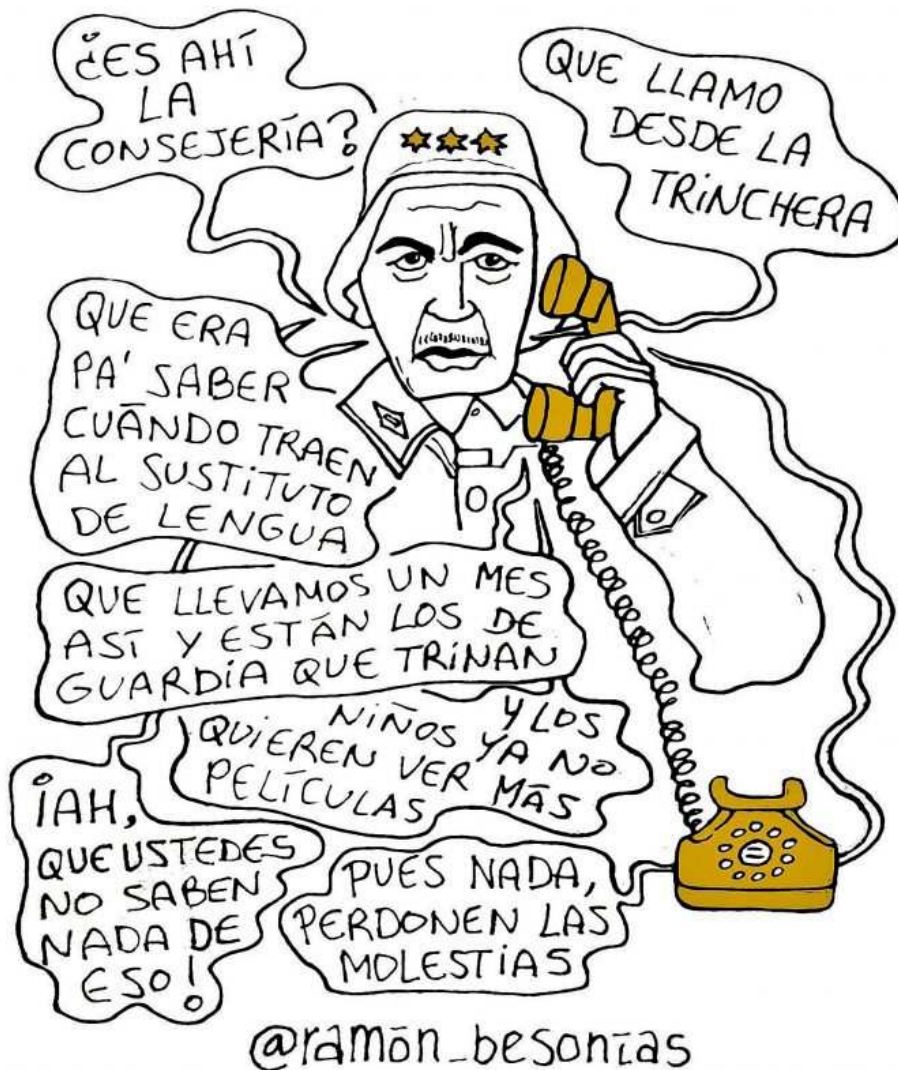 ¿ES AHÍ
LA
CONSEJERÍA?
QUE LLAMO
DESDE LA
TRINCHERA
QUE ERA
PA' SABER
CUÁNDO TRAEN
AL SUSTITUTO
DE LENGUA
QUE LLEVAMOS UN MES
ASÍ Y ESTÁN LOS DE
GUARDIA QUE TRINAN
Y LOS
NIÑOS YA NO
QUIEREN VER MÁS
PELÍCULAS
¡AH,
QUE USTEDES
NO SABEN
NADA DE
ESO!
PUES NADA,
PERDONEN LAS
MOLESTIAS
@ramón_besonías